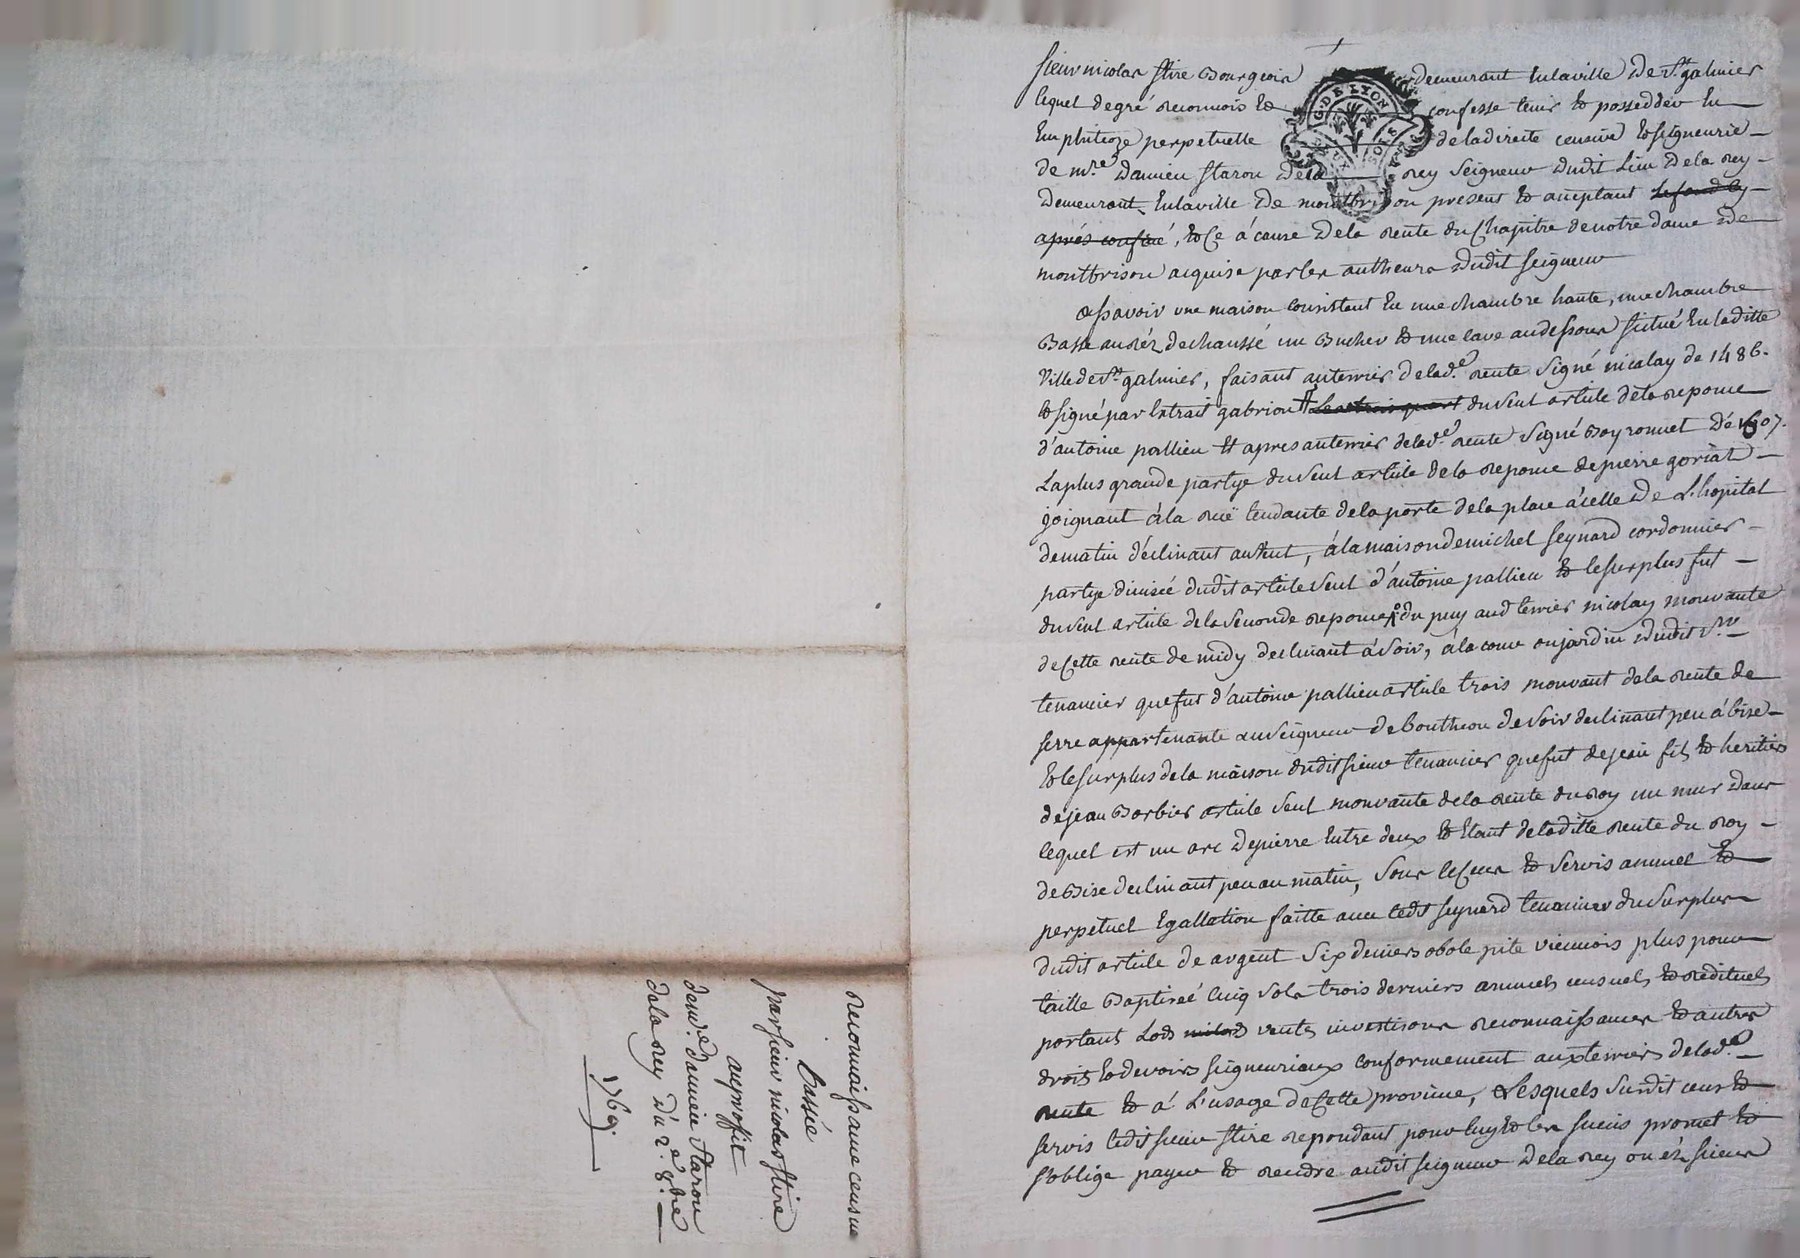 Sieur nicolas Stire Bourgeois demeurant En la ville De St. galmier
lequel de gré reconnois Et confesse tenir Et posseddér En
Emphiteoze perpetuelle de la directe censive Et seigneurie
de mre. Damien Staron Dela rey seigneur dudit Lieu De la rey
Demeurant En la ville De montbrison present Et aceptant
après confiné, Et Ce á cause De la rente du Chapitre de notre dame De
montbrison acquise par les autheurs Dudit seigneur
assavoir une maison Consistant En une chambre haute, une chambre
Basse au réz de chaussé un Bucher Et une cave au dessous situé En laditte
Ville de St. galmier, faisant au terrier de lade. rente signé nicolay de 1486.
Et signé par Extrait gabrion du seul article de la reponce
d'antoine pallieu Et apres au terrier de lade. rente signé Boyronnet Dé 1607.
La plus grande partye du seul article de la reponce de pierre goriat
joignant á la ruë tendante de la porte de la place á celle De L'hopital
de matin déclinant au vent, á la maison de michel seynard cordonnier
partye divisée dudit article seul d'antoine pallieu Et le surplus fut
du seul article de la seconde reponce du puy aud terrier nicolay mouvante
de Cette rente de midy declinant á soir, á la cour ou jardin dudit Sr.
tenancier que fut d'antoine pallieu article trois mouvant de la rente de
serre appartenante au seigneur de Boutheon de soir declinant peu á bize
Et le surplus de la maison dudit sieur tenancier que fut de jean fils Et heritier
de jean Barbier article seul mouvante de la rente du roy un mur dans
lequel est un arc De pierre Entre deux Et Etant de laditte rente du roy
de Bise declinant peu au matin, sous le Cens Et servis annuel Et
perpetuel Egallation faitte avec ledt seynard tenancier du surplus
dudit article de argent six deniers obole pite viennois plus pour
taille Baptiseé Cinq sols trois derniers annuels censuels Et redituels
portant Lods milods vents investisons reconnaissances Et autres
droits Et devoirs seigneuriaux Conformement aux terriers de lade.
rente Et á L'usage de Cette province, Lesquels susdit cens Et
servis ledit sieur Stire repondant pour luy Et les siens promet Et
s'oblige payer Et rendre audit seigneur De la rey ou éz sieurs
reconnaissance censue
Passée
par sieur nicolas Stire
au profit
de mre. damien Staron
de la rey Du 2e. 8bre
1769.